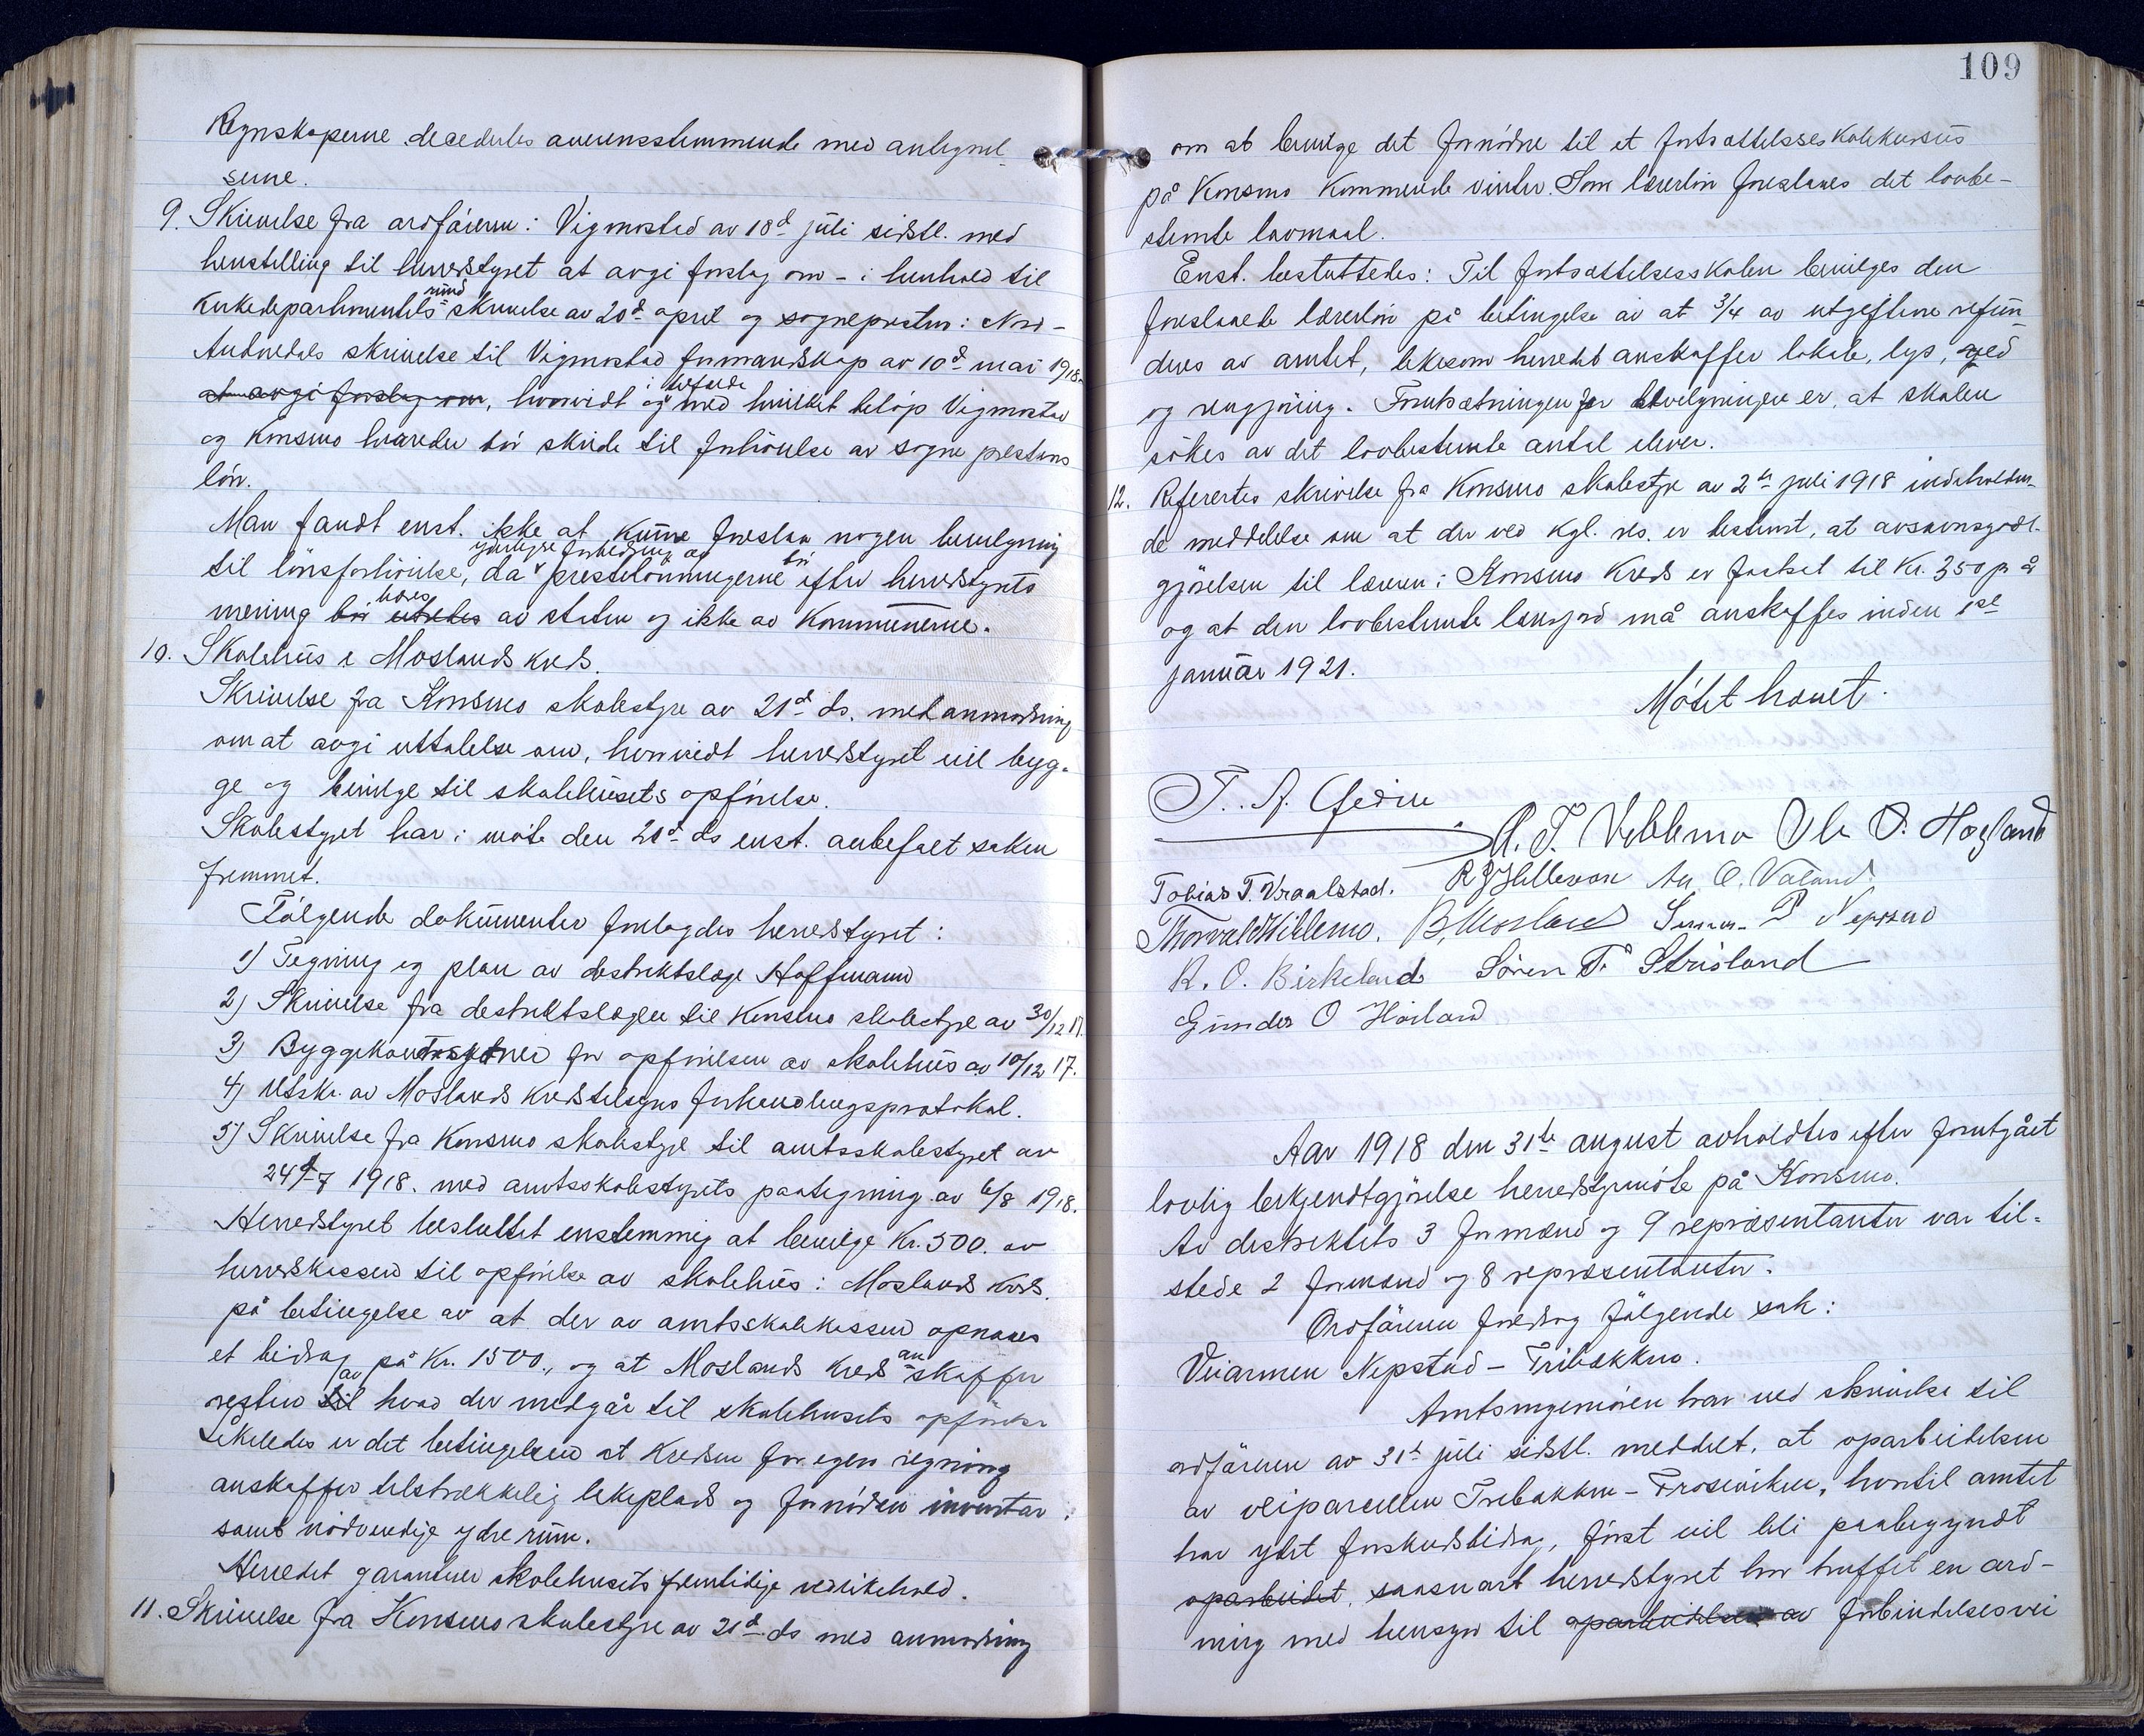 Regnskaperne decedertes overensstemmende med antegnel-
serne.
9. Skrivelse fra ordføreren i Vigmostad av 18d juli sidstl. med
henstilling til herredstyret at avgi forslag om – i henhold til
Kirkedepartementets rundskrivelse av 20d april og sognepresten i Nord-
Audnedals skrivelse til Vigmostad formandskap av 10d mai 1918
at avgi forslag om, hvorvidt og i tilfælde med hvilket beløp Vigmostad
og Konsmo herreder bør skride til forhøielse av sogneprestens
løn.
Man fandt enst. ikke at kunne foreslaa nogen bevilgning
til lønsforhøielse, da yderligere forbedring av prestelønningerne bør efter herredstyrets
mening bør utredes bæres av staten og ikke av kommunerne.
10. Skolehus i Moslands kreds.
Skrivelse fra Konsmo skolestyre av 21d ds. med anmodning
om at avgi uttalelse om, hvorvidt herredstyret vil byg-
ge og bevilge til skolehusets opførelse.
Skolestyret har i møte den 20d ds enst. anbefalt saken
fremmet.
Følgende dokumenter forelagdes herredstyret:
1) Tegning og plan av destriktslæge Hoffmann
2) Skrivelse fra destriktslægen til Konsmo skolestyre av 30/12 17.
3) Byggekontrakt for opførelsen av skolehus av 10/12 17.
4) Utskr. av Moslands kredstilsyns forhandlingsprotokol.
5) Skrivelse fra Konsmo skolestyre til amtsskolestyret av
24/7 1918. med amtsskolestyrets paategning av 6/8 1918.
Herredstyret besluttet enstemmig at bevilge Kr. 500. av
herredskassen til opførelse av skolehus i Moslands kreds.
på betingelse av at der av amtsskolekassen opnaaes
et bidrag på Kr. 1500., og at Moslands kreds anskaffer
resten til av hvad der medgår til skolehusets opførelse
Likeledes er det betingelsen at kredsen for egen regning
anskaffer tilstrækkelig lekeplads og fornøden inventar
samt nødvendige ydre rum.
Herredet garanterer skolehusets fremtidige vedlikehold.
11. Skrivelse fra Konsmo skolestyre av 21d ds med anmodning
109
om at bevilge det fornødne til et fortsættelsesskolekursus
på Konsmo kommende vinter. Som lærerløn foreslaaes det lovbe-
stemte lavmaal.
Enst. besluttedes: Til fortsættelsesskolen bevilges den
foreslaaede lærerløn på betingelse av at 3/4 av utgifterne refun-
deres av amtet, likesom herredet anskaffer lokale, lys, ved
og rengjøring. Forutsætningen for bevilgningen er, at skolen
søkes av det lovbestemte antal elever.
12. Refertes skrivelse fra Konsmo skolestyre av 2de juli 1918 indeholden-
de meddelelse om at der ved kgl. res. er bestemt, at avsavnsgodt-
gjørelsen til læreren i Konsmo kreds er fastsat til Kr. 350 pr år
og at den lovbestemte lærerjord må anskaffes inden 1ste
januar 1921.
Møtet hævet.
T. A. Gedin
A. T. Vehlemo Ole O. Hægland
Tobias T. Vraalstad. R J Hellevan An. O. Valand
Thorvald Vihlemo. B. Mosland P Nepstad
R. O. Birkeland Søren T. Stuisland
Gunder O Høiland
Aar 1918 den 31te august avholdtes efter forutgået
lovlig bekjendtgjørelse herredstyrmøte på Konsmo.
Av destriktets 3 formænd og 9 repræsentanter var til-
stede 2 formænd og 8 repræsentanter.
Ordføreren foredrog følgende sak:
Veiarmen Nepstad – Tribakken.
Amtsingeniøren har ved skrivelse til
ordføreren av 31te juli sidstl. meddelt, at oparbeidelsen
av veiparcellen Tribakken – Froseviken, hvortil amtet
har ydet forskudsbidrag, først vil bli paabegyndt
oparbeidet, saasnart herredstyret har truffet en ord-
ning med hensyn til oparbeidelsen av forbindelsesvei